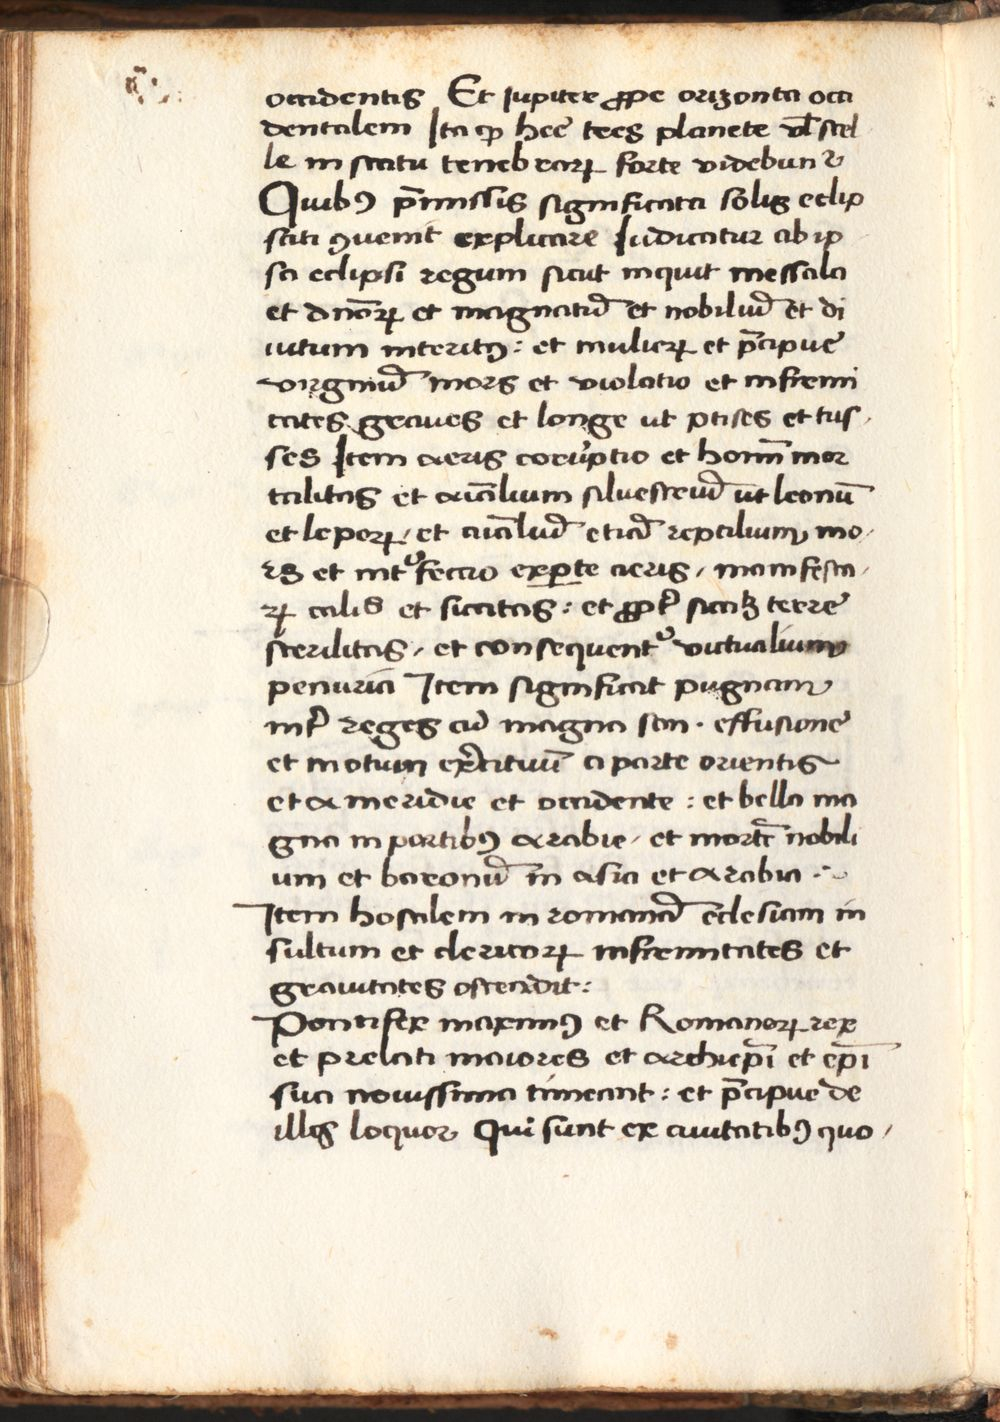 occidentis Et Iupiter ꝓpe orizonta occi
dentalem Ita ꝙ hee tres planete vl̄ stel
le in statu tenebrarꝝ forte videbunt᷑
Quibꝰ p̄missis significata solis eclip
sati ꝯuenit explicare Iudicatur ab ip
sa eclipsi regum sicut inquit messala
et dn̄orꝝ et magnatū et nobiliū et di
uitum interitꝰ: et mulierꝝ et p̄cipue
virginū mors et violatio et infirmi
tates graues et longe ut ptises et tus-
ses Item aeris coruptio et hoīm mor
talitas et aīalium siluestriū ut leonū
et leporꝝ, et aīaliū etiā reptilium mo-
rs et int᷑fectio ex ꝑte aeris, manifesta-
rꝝ calis et siccitas: et ꝓpt̄ siccitatē terre
sterilitas, et consequent᷑ victualium
penuria Item significat pugnam
int̄ reges cū magna san. effusione
et motum ex̄cituū a parte orientis
et a meridie et occidente: et bella ma
gna in partibꝰ arabie, et mortē nobili
um et baronū in asia et arabia
Item hostilem in romanā eclesiam in
sultum et clericorꝝ infirmitates et
grauitates ostendit:
Pontifex maximꝰ et Romanorꝝ rex
et prelati maiores et archiep̄i et ep̄i
sua nouissima timeant: et p̄cipue de
illis loquor Qui sunt ex ciuitatibꝰ quo-